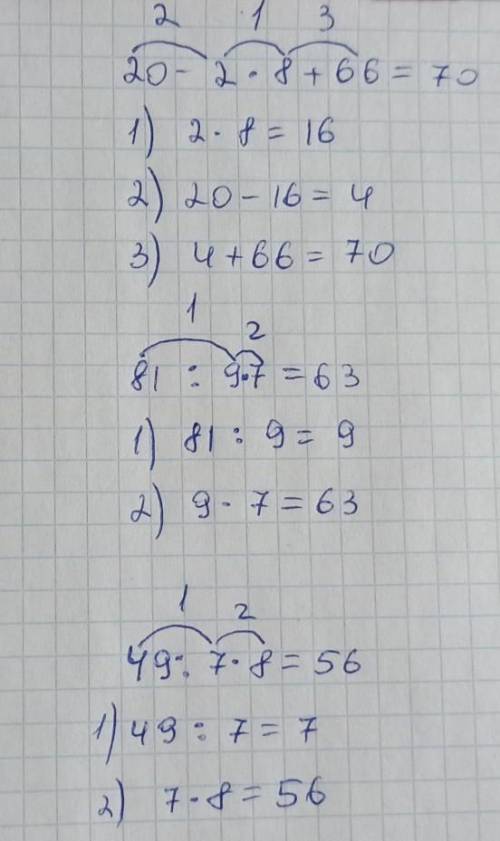 2 1 3
20 - 2 · 8 + 66 = 70
1) 2 · 8 = 16
2) 20 - 16 = 4
3) 4 + 66 = 70
1 2
81 : 9 · 7 = 63
1) 81 : 9 = 9
2) 9 · 7 = 63
1 2
49 : 7 · 8 = 56
1) 49 : 7 = 7
2) 7 · 8 = 56